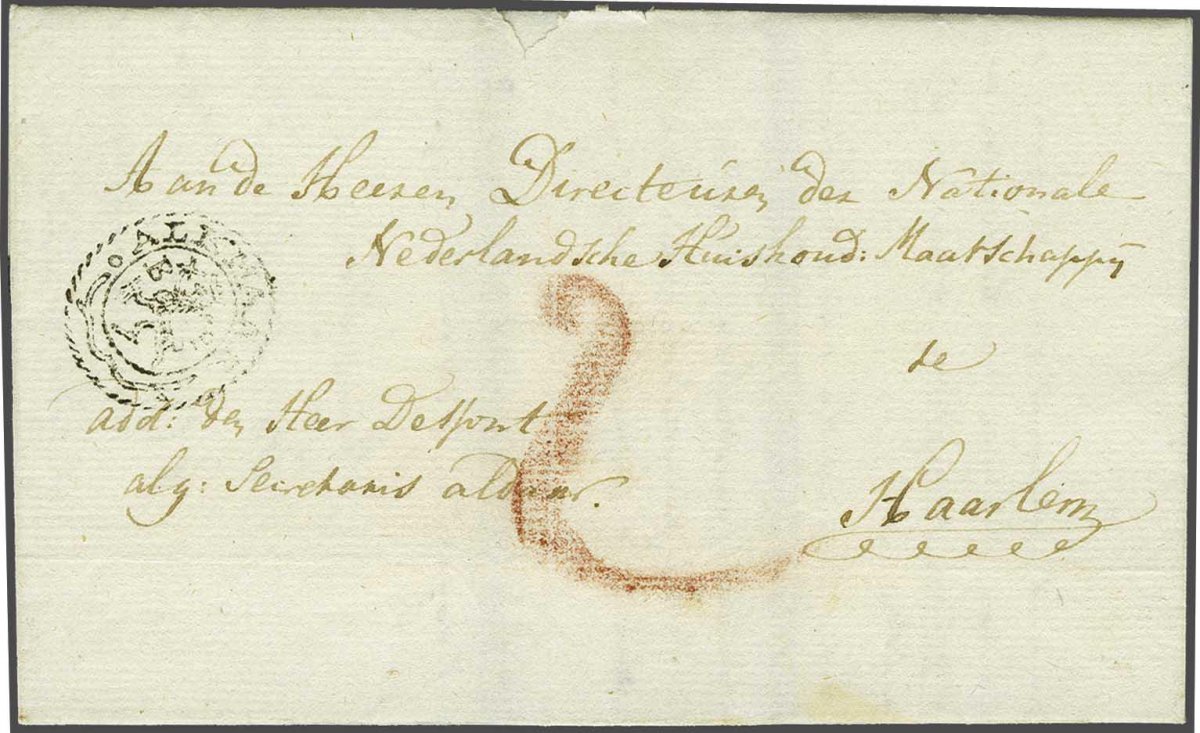 Aan de Heeren Directeuren der Nationale
Nederlandsche Huishoud: Maatschappÿ
te
Haarlem
add: den Heer Delpont
alg: Secretaris aldaar.
ALKMAAR
2